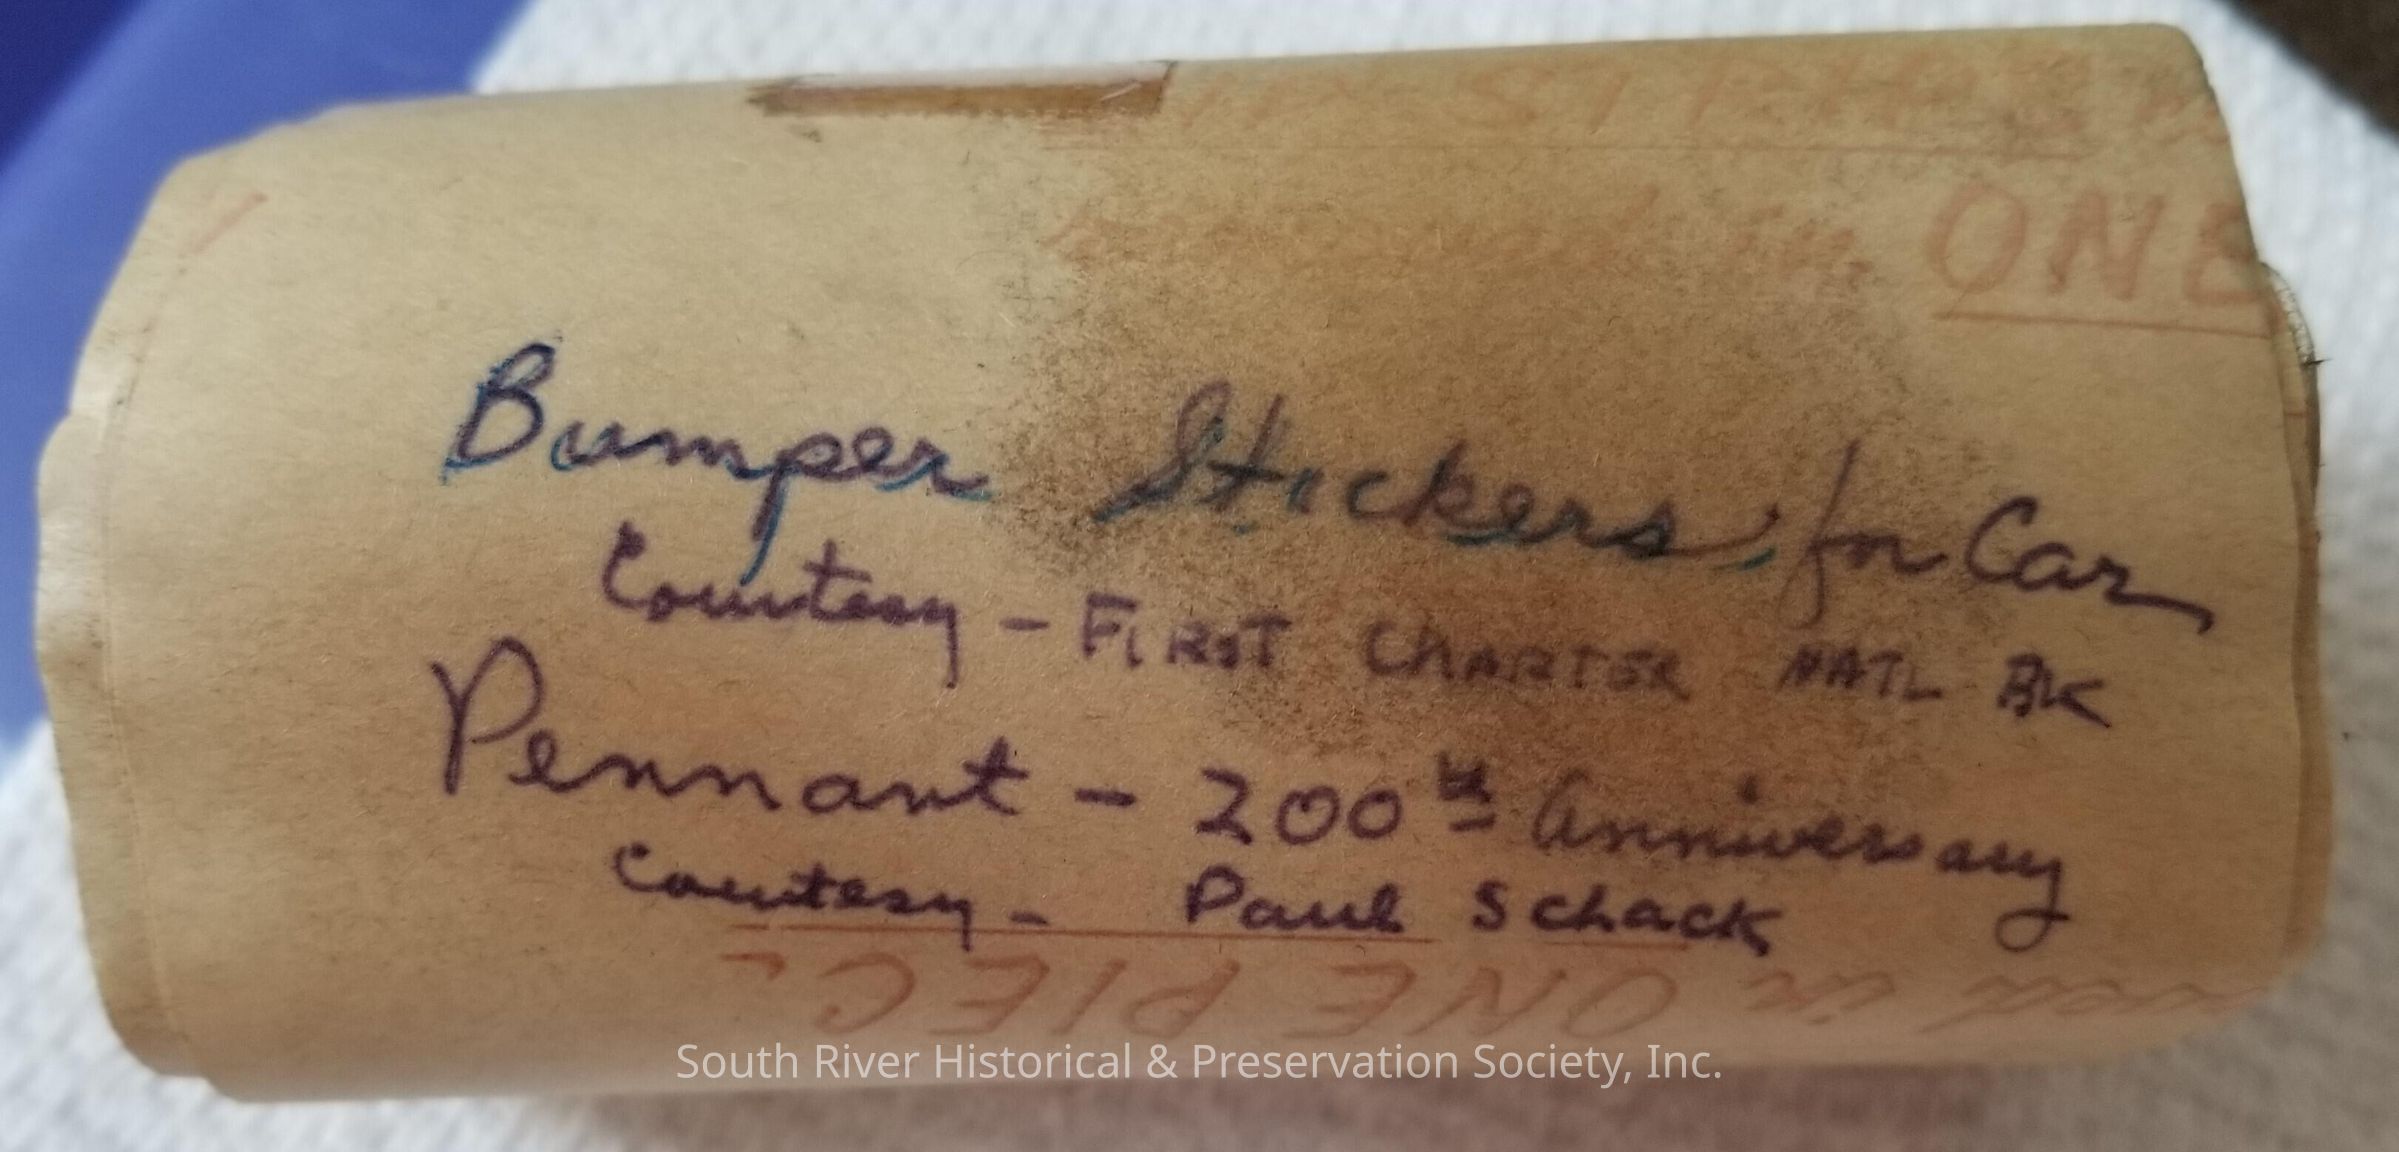 in ONE
Bumper Stickers for Car
Courtesy - FIRST CHARTER NATL BK
Pennant - 200th Anniversary
Courtesy - Paul Schack
in ONE PIEC
South River Historical & Preservation Society, Inc.